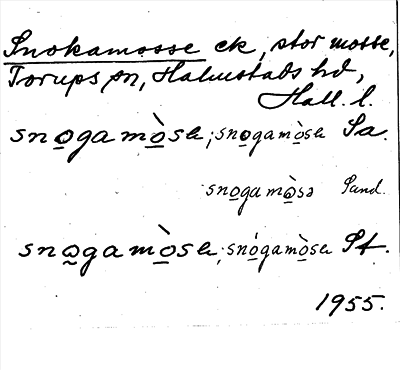 Snokamosse ck, stor mosse,
Torups sn, Halmstads hd,
Hall. l.
sno̲gamò̲sa; sno̲gamò̲sa Sa.
sno̲gamò̲sə Sand.
sno̲gamò̲sa; snó̲gamò̲sa St.
1955.